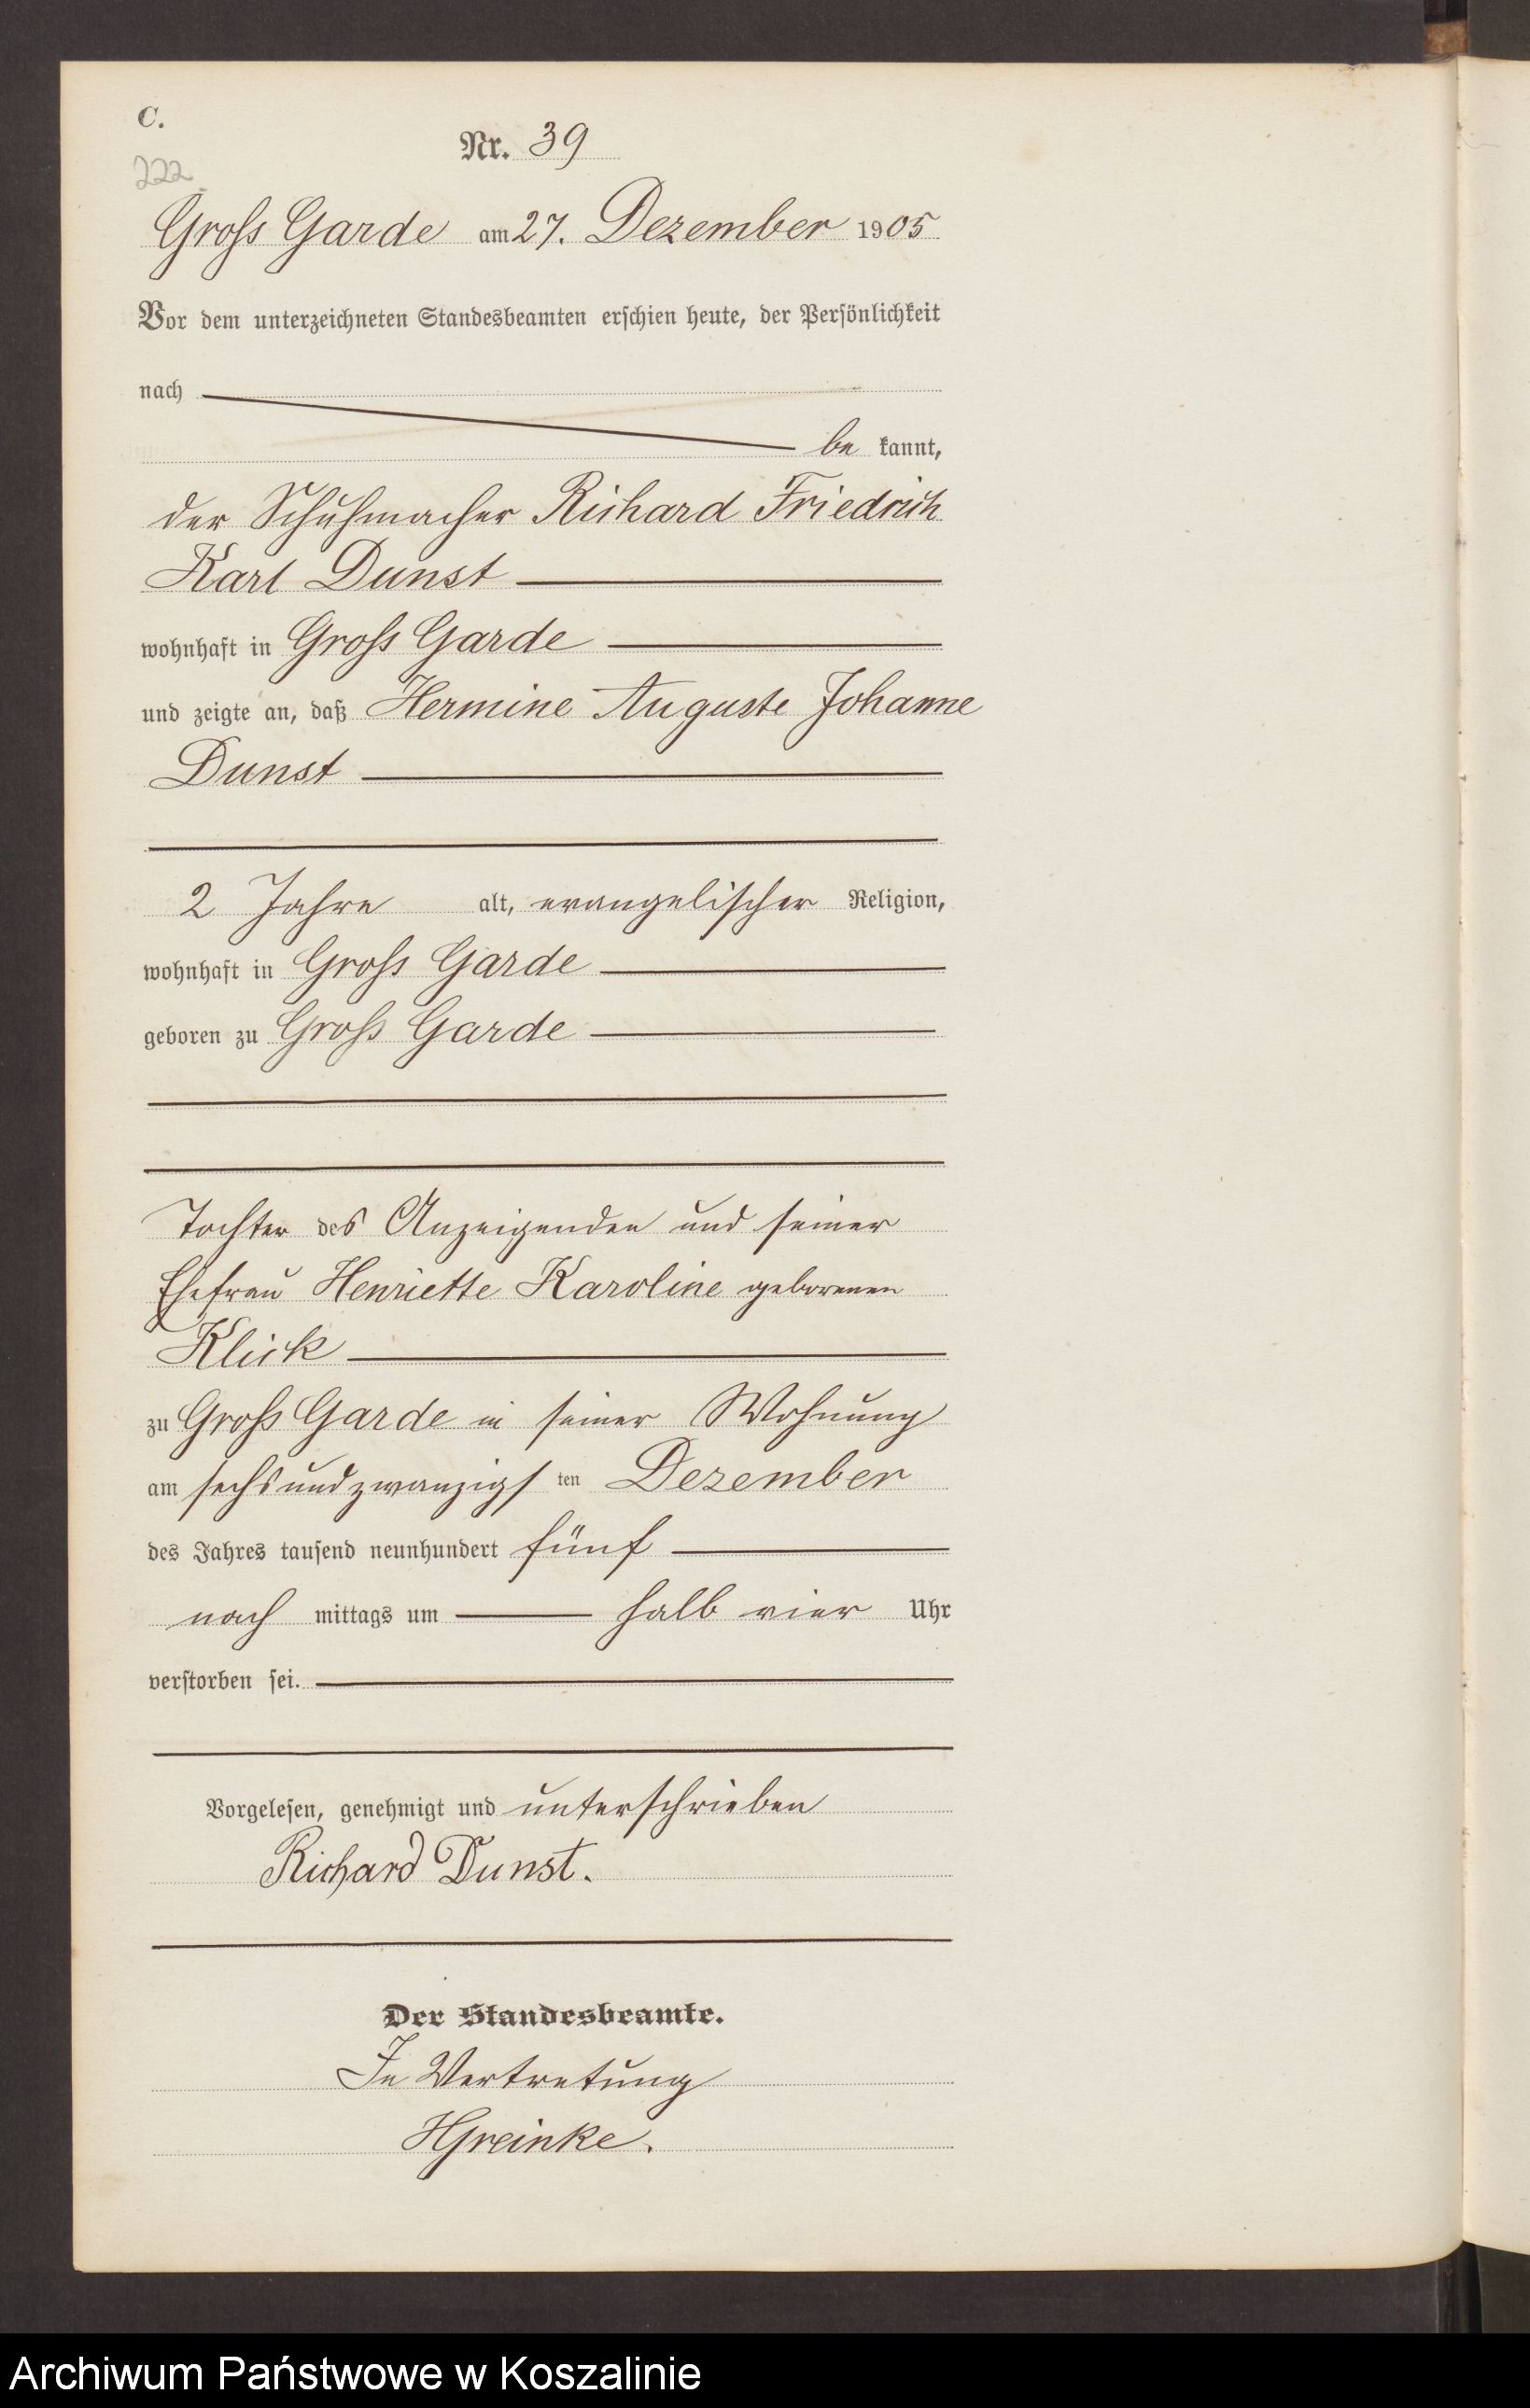 C.
Nr. 39
222
Gross Garde am 27. Dezember 1905
Vor dem unterzeichneten Standesbeamten erschien heute, der Persönlichkeit
nach
be kannt,
der Schuhmacher Richard Friedrich
Karl Dunst
wohnhaft in Gross Garde
und zeigte an, daß Hermine Auguste Johanne
Dunst
2 Jahre alt, evangelischer Religion,
wohnhaft in Gross Garde
geboren zu Gross Garde
Tochter des Anzeigenden und seiner
Ehefrau Henriette Karoline geborenen
Klick
zu Gross Garde in seiner Wohnung
am sechsundzwanzigs ten Dezember
des Jahres tausend neunhundert fünf
nach mittags um halb vier Uhr
verstorben sei.
Vorgelesen, genehmigt und unterschrieben
Richard Dunst.
Der Standesbeamte.
In Vertretung
HGreinke.
Archiwum Państwowe w Koszalinie